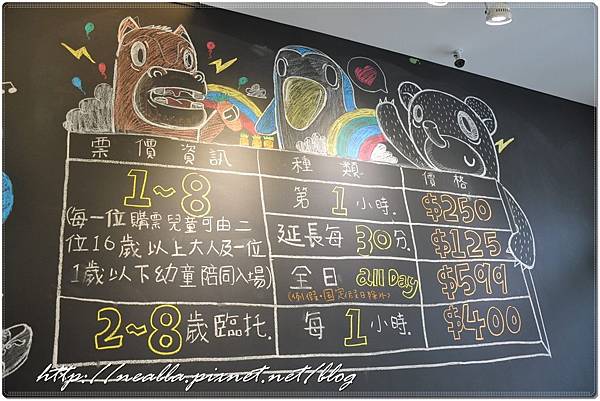 票價資訊 種類 價格
1~8
(每一位購票兒童可由二
位16歲以上大人及一位
1歲以下幼童陪同入場)
第1小時. $250
延長每30分. $125
全日 all Day $599
(例假.國定假日除外)
2~8歲臨托. 每1小時. $400
http://nealla.pixnet.net/blog